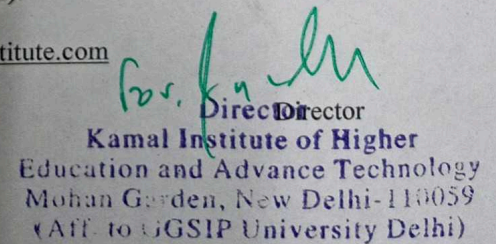 titute.com
For.
Director Director
Kamal Institute of Higher
Education and Advance Technology
Mohan Garden, New Delhi-110059
(Aff. to GGSIP University Delhi)